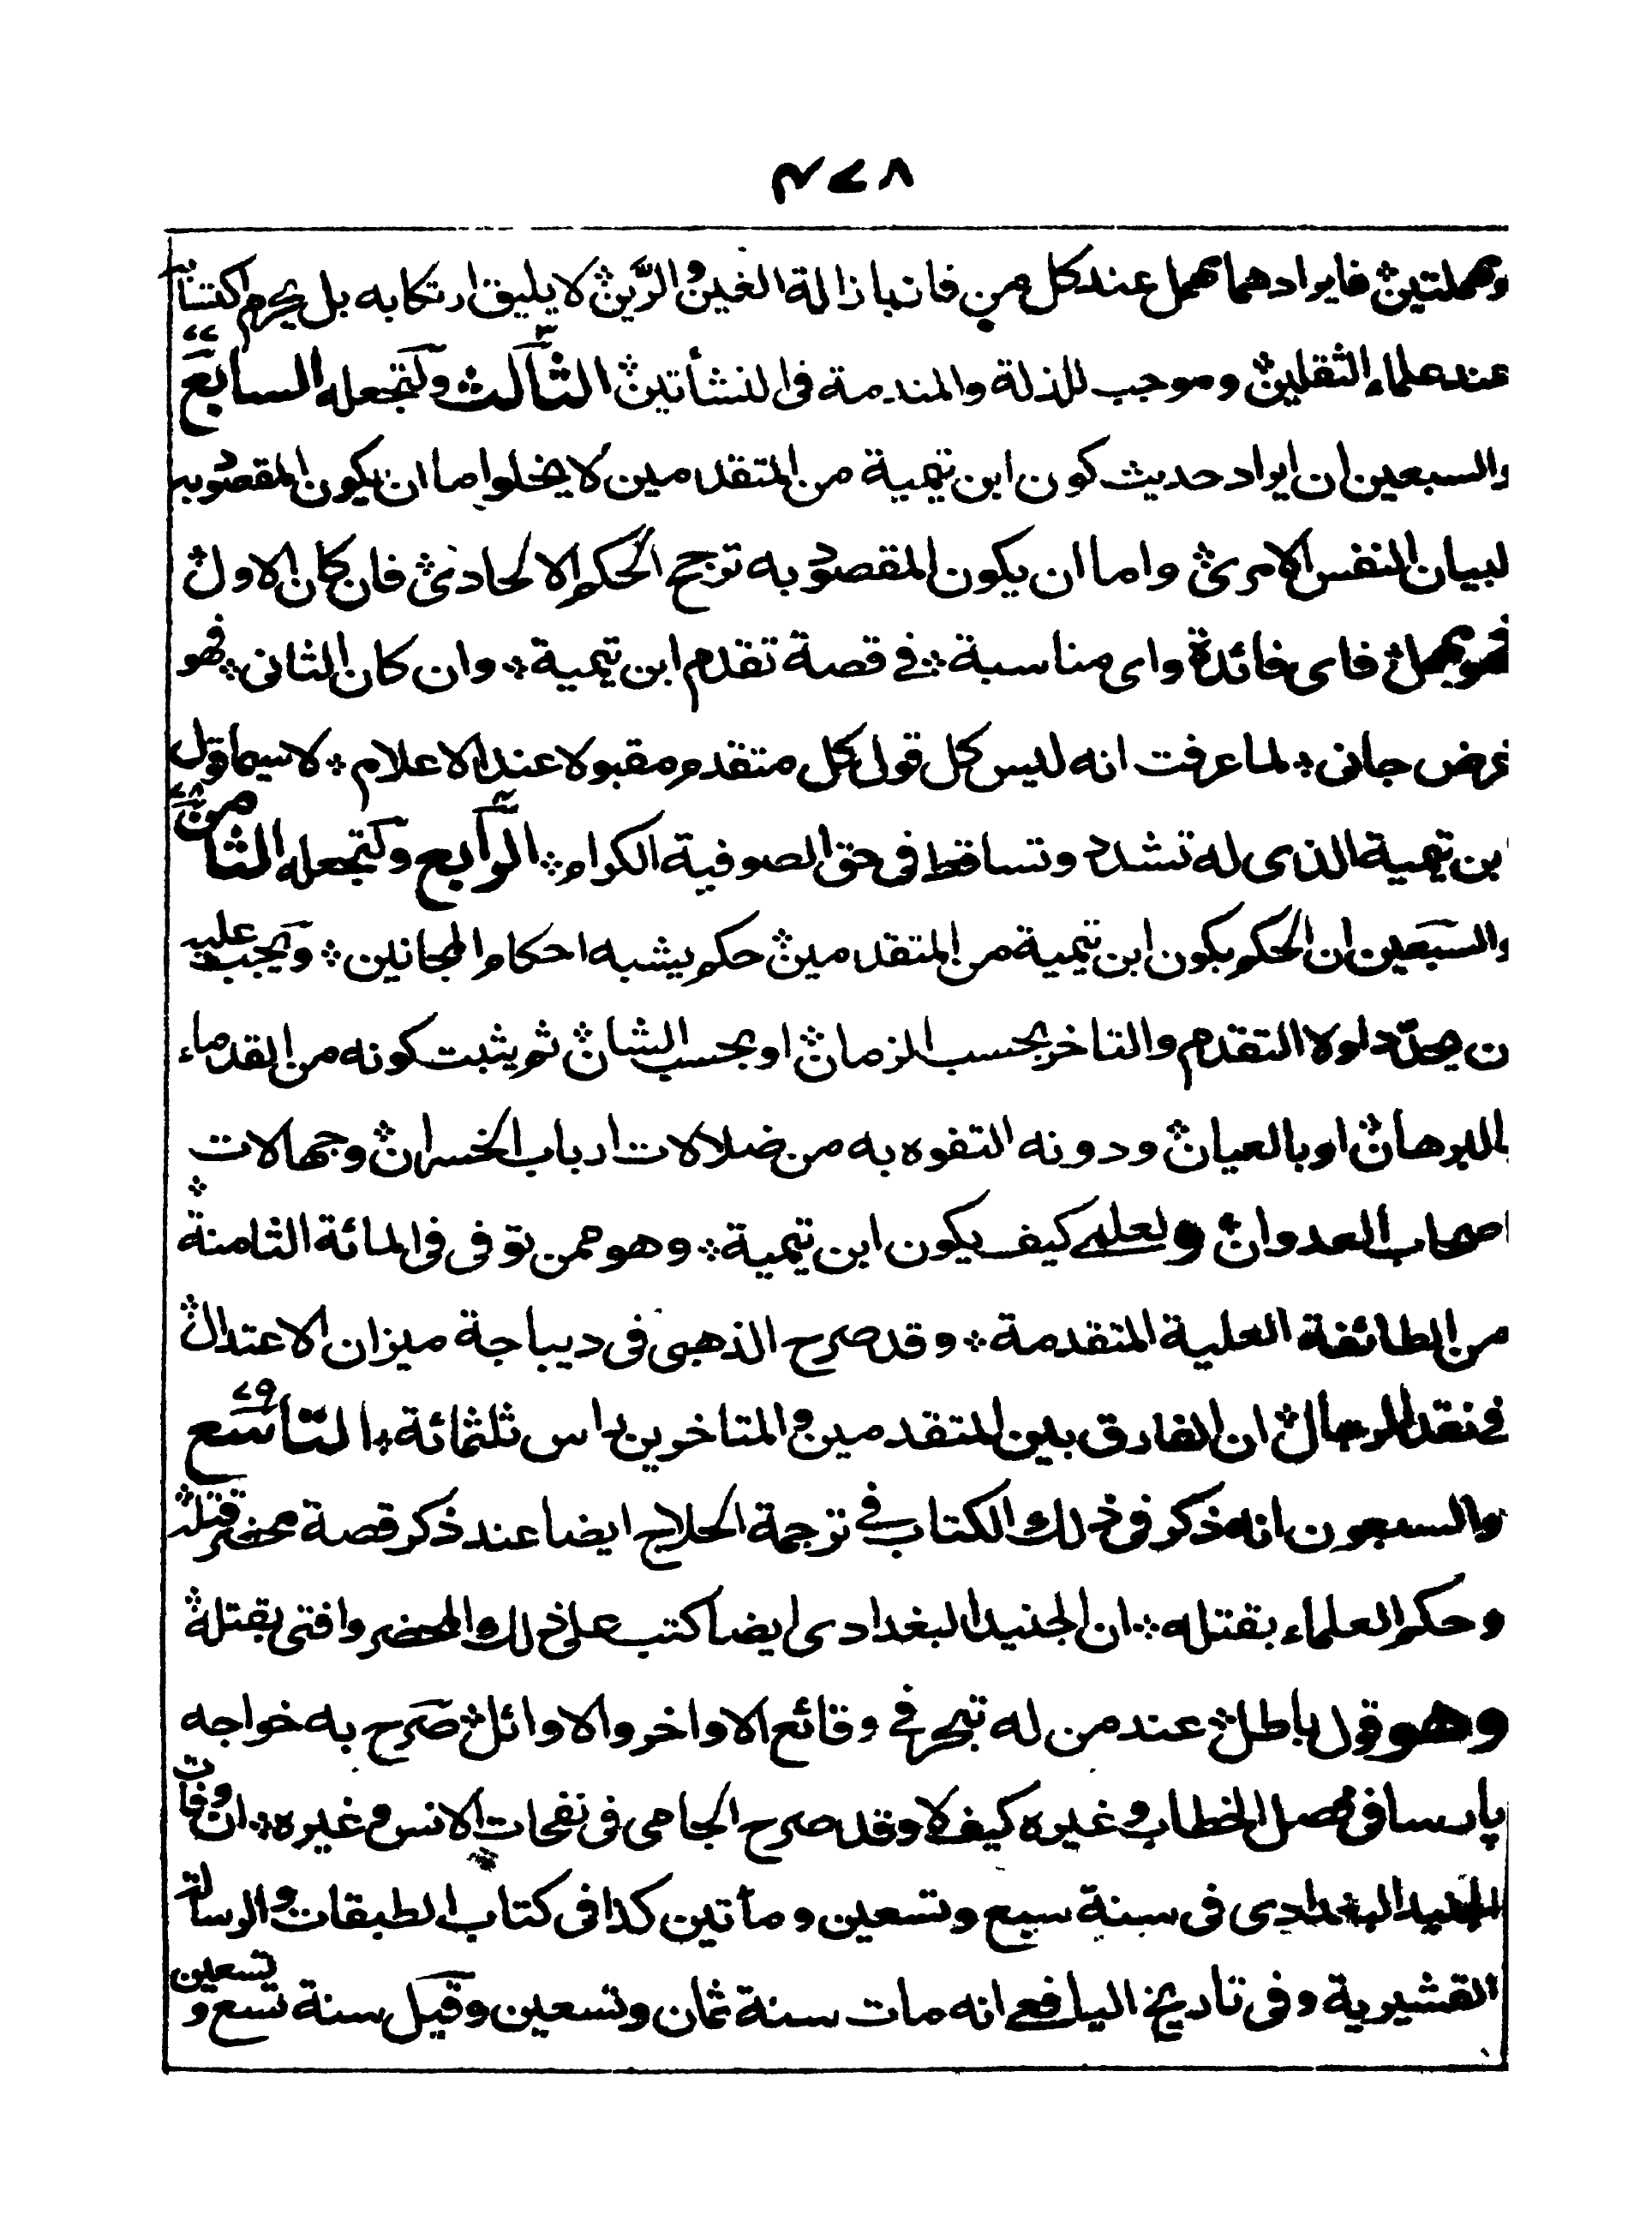 ٤٧٨
ومهملتين فايرادهما مهمل عند كل من فاز بازالة الغين والرَّين لا يليق ارتكابه بل يحرم اكتسابه
عند علماء الثقلين وموجب للذلة والمندمة فى النشأتين الثالث ولنجعله السابع ٧٧
والسبعين ان ايراد حديث كون ابن تيمية من المتقدمين لا يخلوا ما ان يكون المقصود به
لبيان النفس الامرى واما ان يكون المقصود به ترجح الحكم الالحادى فان كان الاول
فهو مهمل فاى فائدة واى مناسبة في قصة تقدم ابن تيمية وان كان الثانى فهو
غرض جانى لما عرفت انه ليس كل قول كل متقدم مقبولا عند الاعلام لا سيما قول
ابن تيمية الذى له تشدد وتساقط فى حق الصوفية الكرام الرابع ولنجعله الثامن ٧٨
والسبعين ان الحكم بكون ابن تيمية من المتقدمين حكم يشبه احكام المجانين ويجب عليه
ان يحدّد اولا التقدم والتاخر بحسب الزمان او بحسب الشان ثم يثبت كونه من القدماء
بالبرهان او بالعيان ودونه التفوه به من ضلالات ارباب الخسران وجهالات
اصحاب العدوان ولعلمى كيف يكون ابن تيمية وهو ممن توفى فى المائة الثامنة
من الطائفة العلية المتقدمة وقد صرح الذهبى فى ديباجة ميزان الاعتدال
في نقد الرجال ان الفارق بين المتقدمين والمتاخرين راس ثلثمائة التاسع ٧٩
والسبعون انه ذكر فى ذلك الكتاب في ترجمة الحلاج ايضا عند ذكر قصة محضر قتله
وحكم العلماء بقتله ان الجنيد البغدادى ايضا كتب على ذلك المحضر وافتى بقتله
وهو قول باطل عند من له تبحر في وقائع الاواخر والاوائل صرح به خواجه
پارسا فى فصل الخطاب وغيره كيف لا وقد صرح الجامى فى نفحات الانس وغيره ان وفات
الجنيد البغدادى فى سنة سبع وتسعين ومأتين كذا فى كتاب الطبقات والرسالة
القشيرية وفى تاريخ اليافعى انه مات سنة ثمان وتسعين وقيل سنة تسع وتسعين